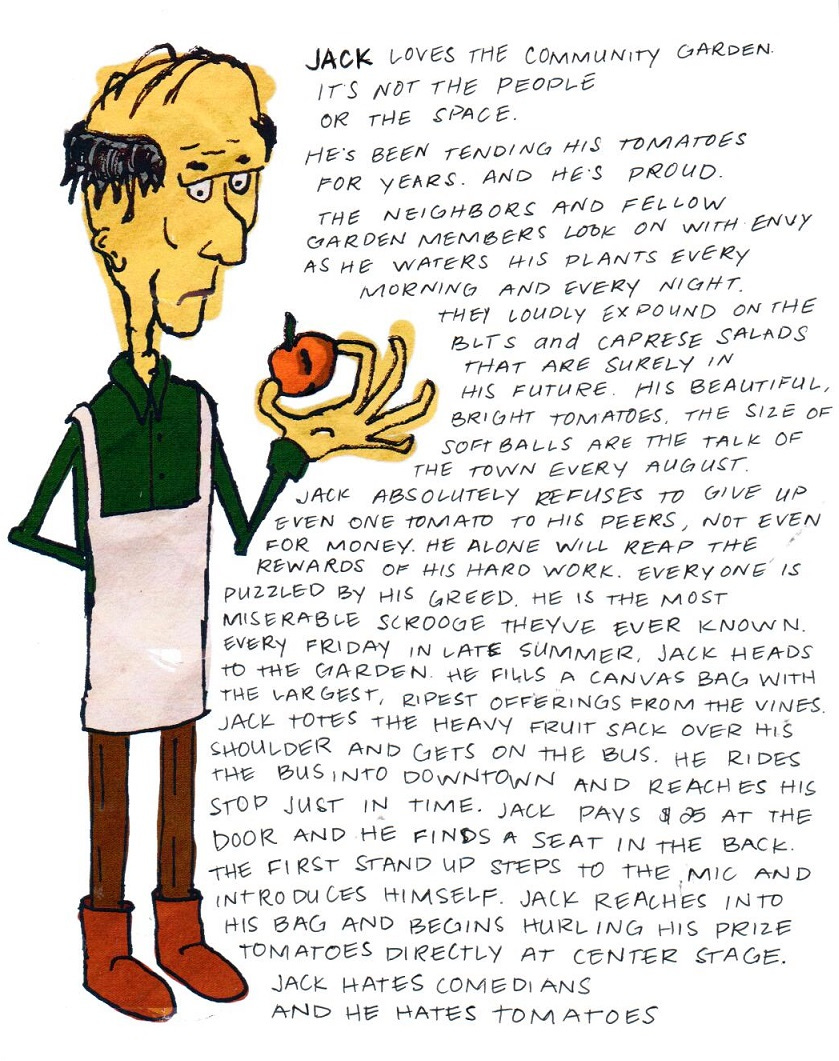 JACK LOVES THE COMMUNITY GARDEN.
IT'S NOT THE PEOPLE
OR THE SPACE.
HE'S BEEN TENDING HIS TOMATOES
FOR YEARS. AND HE'S PROUD.
THE NEIGHBORS AND FELLOW
GARDEN MEMBERS LOOK ON WITH ENVY
AS HE WATERS HIS PLANTS EVERY
MORNING AND EVERY NIGHT.
THEY LOUDLY EXPOUND ON THE
BLTS and CAPRESE SALADS
THAT ARE SURELY IN
HIS FUTURE. HIS BEAUTIFUL,
BRIGHT TOMATOES, THE SIZE OF
SOFTBALLS ARE THE TALK OF
THE TOWN EVERY AUGUST.
JACK ABSOLUTELY REFUSES TO GIVE UP
EVEN ONE TOMATO TO HIS PEERS, NOT EVEN
FOR MONEY. HE ALONE WILL REAP THE
REWARDS OF HIS HARD WORK. EVERYONE IS
PUZZLED BY HIS GREED. HE IS THE MOST
MISERABLE SCROOGE THEYVE EVER KNOWN.
EVERY FRIDAY IN LATE SUMMER, JACK HEADS
TO THE GARDEN. HE FILLS A CANVAS BAG WITH
THE LARGEST, RIPEST OFFERINGS FROM THE VINES.
JACK TOTES THE HEAVY FRUIT SACK OVER HIS
SHOULDER AND GETS ON THE BUS. HE RIDES
THE BUS INTO DOWNTOWN AND REACHES HIS
STOP JUST IN TIME. JACK PAYS $25 AT THE
DOOR AND HE FINDS A SEAT IN THE BACK.
THE FIRST STAND UP STEPS TO THE MIC AND
INTRODUCES HIMSELF. JACK REACHES INTO
HIS BAG AND BEGINS HURLING HIS PRIZE
TOMATOES DIRECTLY AT CENTER STAGE.
JACK HATES COMEDIANS
AND HE HATES TOMATOES